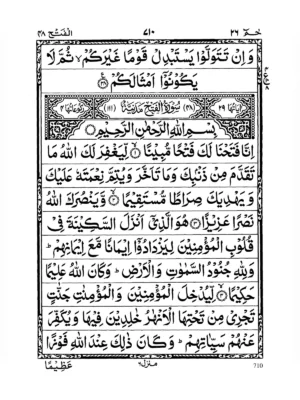 حٰمٓ ٢٦ ٧١٠ الفتح ٤٨
وَاِنْ تَتَوَلَّوْا يَسْتَبْدِلْ قَوْمًا غَيْرَكُمْ ۙ ثُمَّ لَا
يَكُوْنُوْۤا اَمْثَالَكُمْ ﴿٣٨﴾
اٰیاتها ٢٩ (٤٨) سُوْرَةُ الْفَتْحِ مَدَنِيَّةٌ (١١١) رکوعاتها ٤
بِسْمِ اللّٰهِ الرَّحْمٰنِ الرَّحِيْمِ
اِنَّا فَتَحْنَا لَكَ فَتْحًا مُّبِيْنًا ﴿١﴾ لِّيَغْفِرَ لَكَ اللّٰهُ مَا
تَقَدَّمَ مِنْ ذَنْۢبِكَ وَمَا تَاَخَّرَ وَيُتِمَّ نِعْمَتَهٗ عَلَيْكَ
وَيَهْدِيَكَ صِرَاطًا مُّسْتَقِيْمًا ﴿٢﴾ وَّيَنْصُرَكَ اللّٰهُ
نَصْرًا عَزِيْزًا ﴿٣﴾ هُوَ الَّذِيْۤ اَنْزَلَ السَّكِيْنَةَ فِيْ
قُلُوْبِ الْمُؤْمِنِيْنَ لِيَزْدَادُوْۤا اِيْمَانًا مَّعَ اِيْمَانِهِمْ ؕ
وَلِلّٰهِ جُنُوْدُ السَّمٰوٰتِ وَالْاَرْضِ ؕ وَكَانَ اللّٰهُ عَلِيْمًا
حَكِيْمًا ﴿٤﴾ لِّيُدْخِلَ الْمُؤْمِنِيْنَ وَالْمُؤْمِنٰتِ جَنّٰتٍ
تَجْرِيْ مِنْ تَحْتِهَا الْاَنْهٰرُ خٰلِدِيْنَ فِيْهَا وَيُكَفِّرَ
عَنْهُمْ سَيِّاٰتِهِمْ ؕ وَكَانَ ذٰلِكَ عِنْدَ اللّٰهِ فَوْزًا
عَظِيْمًا
منزل ٦
710